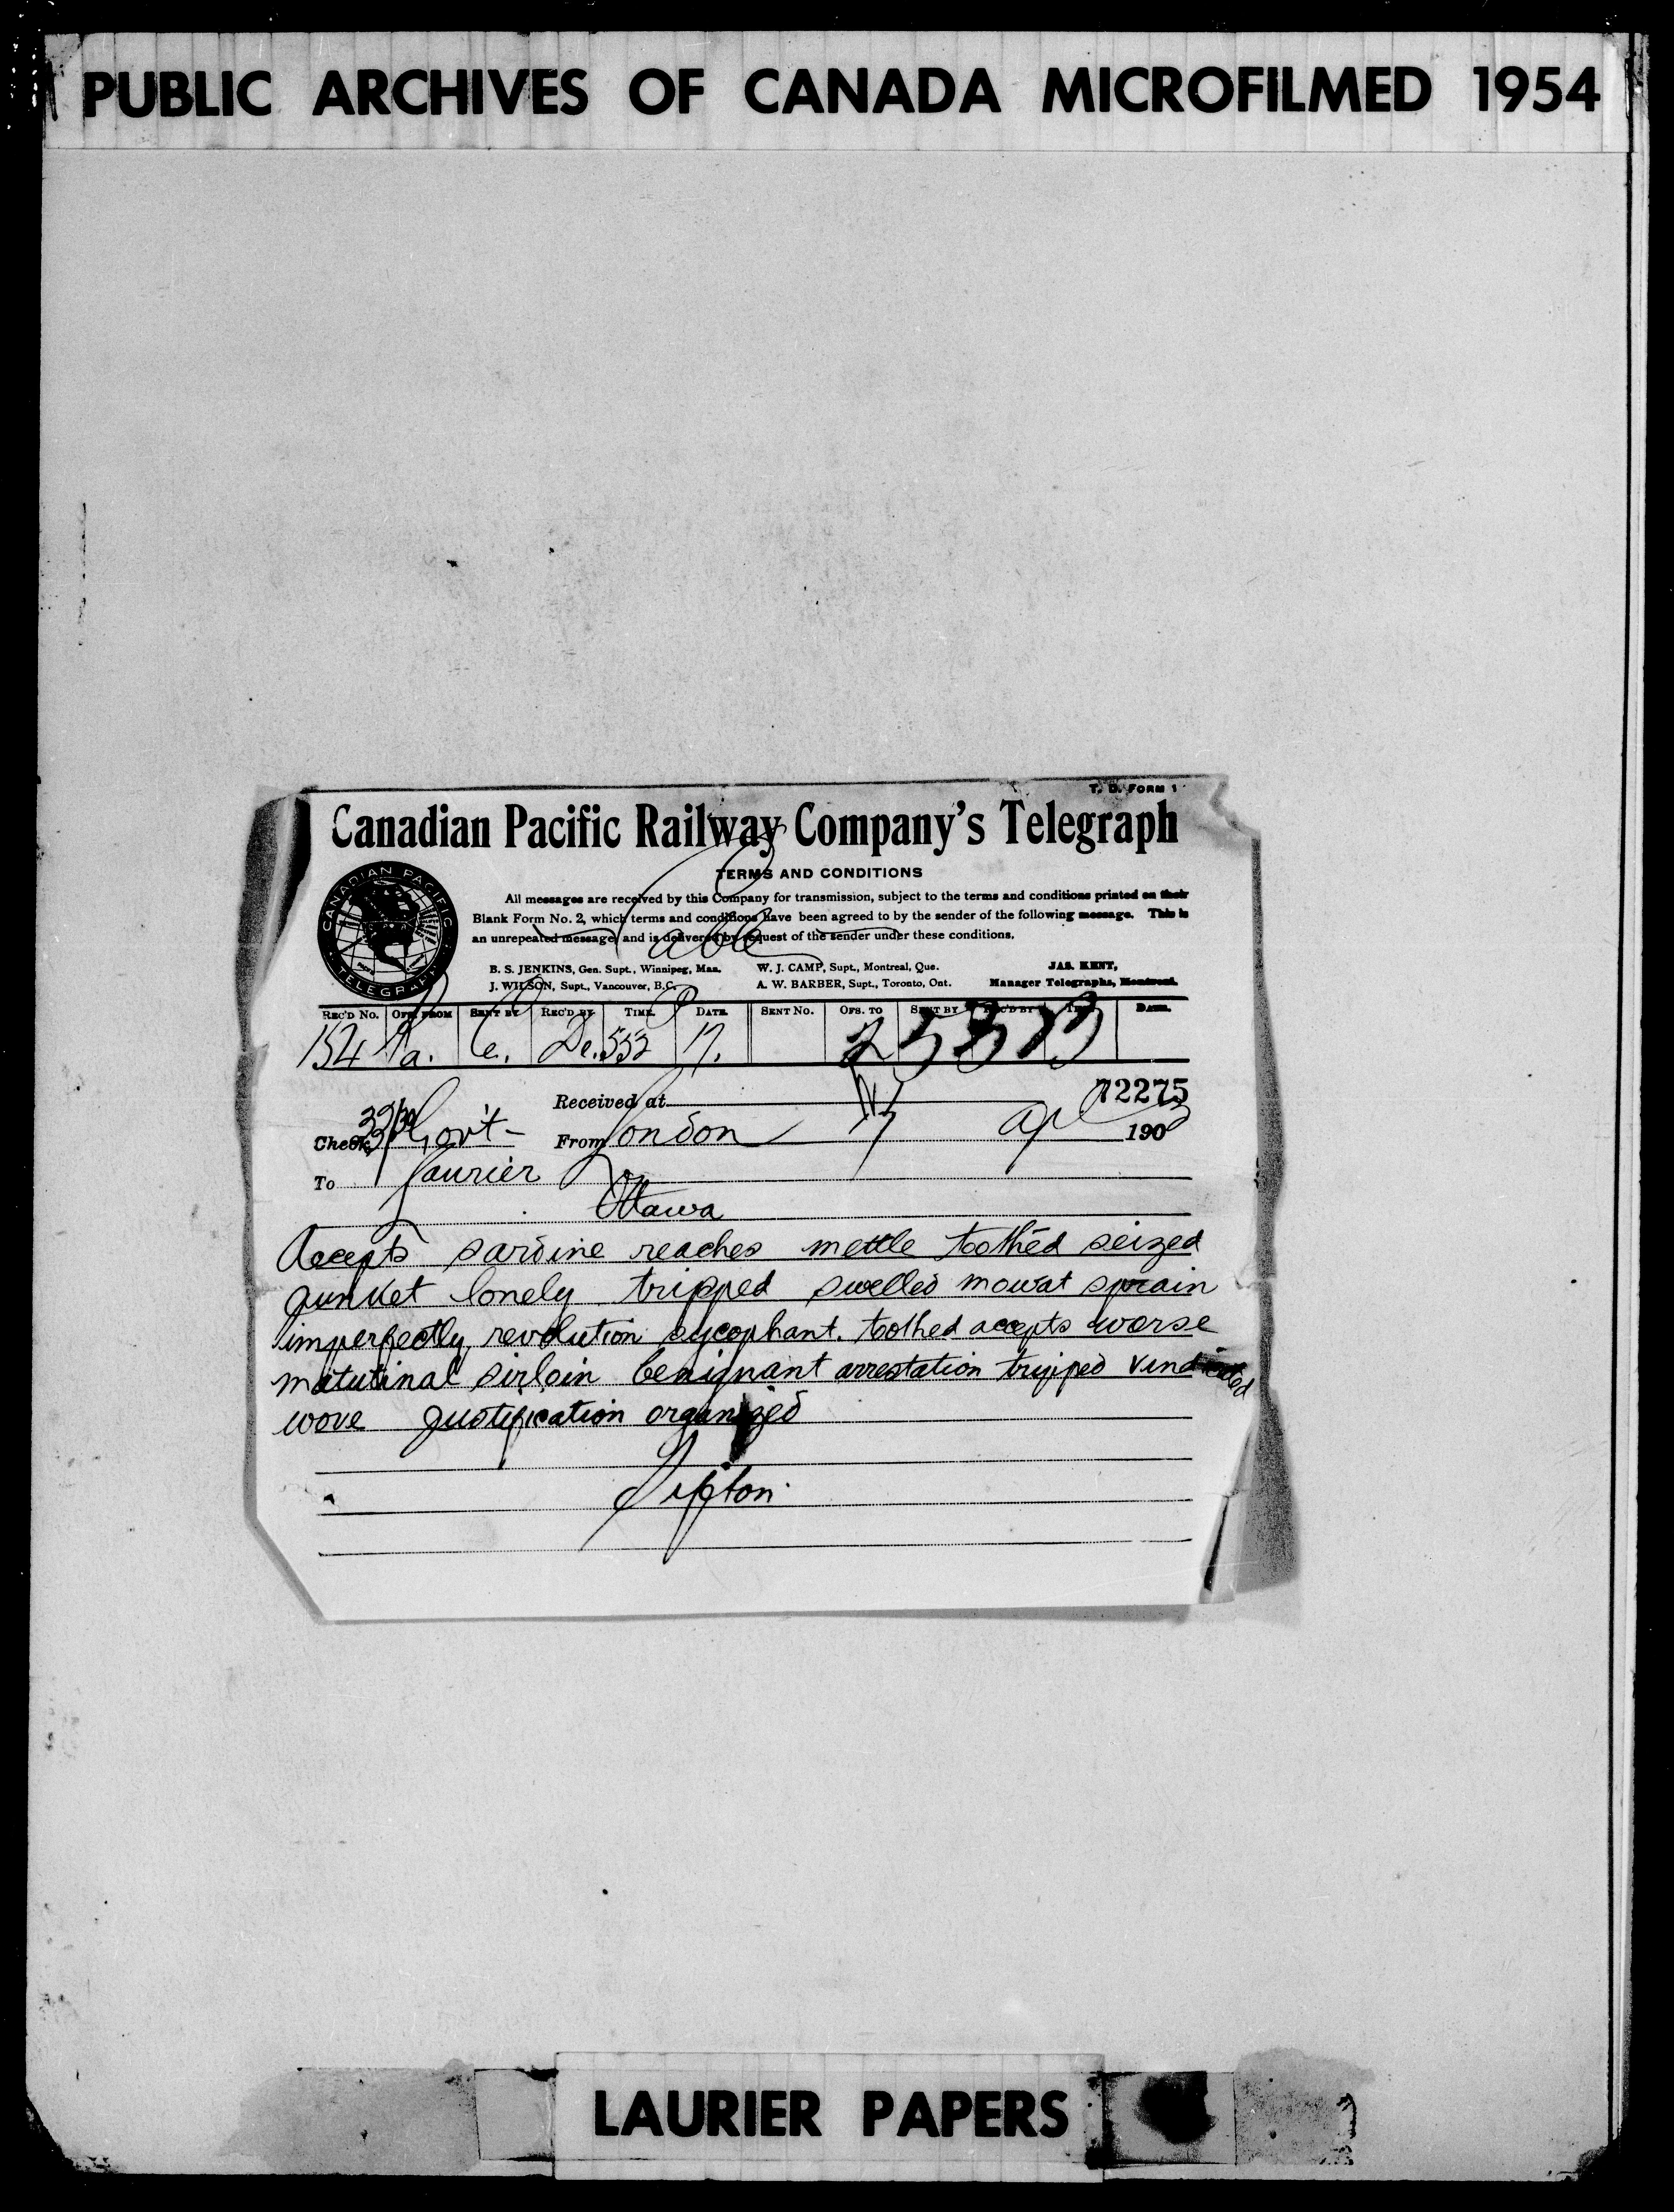 PUBLIC ARCHIVES OF CANADA MICROFILMED 1954
T. D. FORM 1
Canadian Pacific Railway Company's Telegraph
TERMS AND CONDITIONS
All messages are received by this Company for transmission, subject to the terms and conditions printed on their
Blank Form No. 2, which terms and conditions have been agreed to by the sender of the following message. This is
an unrepeated message, and is delivered by request of the sender under these conditions.
Cable
CANADIAN PACIFIC TELEGRAPH
B. S. JENKINS, Gen. Supt., Winnipeg, Man. W. J. CAMP, Supt., Montreal, Que. JAS. KENT,
J. WILSON, Supt., Vancouver, B.C. A. W. BARBER, Supt., Toronto, Ont. Manager Telegraphs, Montreal.
REC'D No. OFS. FROM SENT BY REC'D BY TIME DATE SENT No. OFS. TO SENT BY REC'D BY TIME DATE
134 a. De. 553 17.
72275
Received at
Check Govt- From London 17 Apl 1903
To Laurier
Ottawa
Accepts sardine reaches mettle toothed seized
junket lonely tripped swelled mowat sprain
imperfectly revolution sycophant. toothed accepts worse
matutinal sirloin benignant arrestation tripped vindicated
wove justification organized
Sifton
LAURIER PAPERS